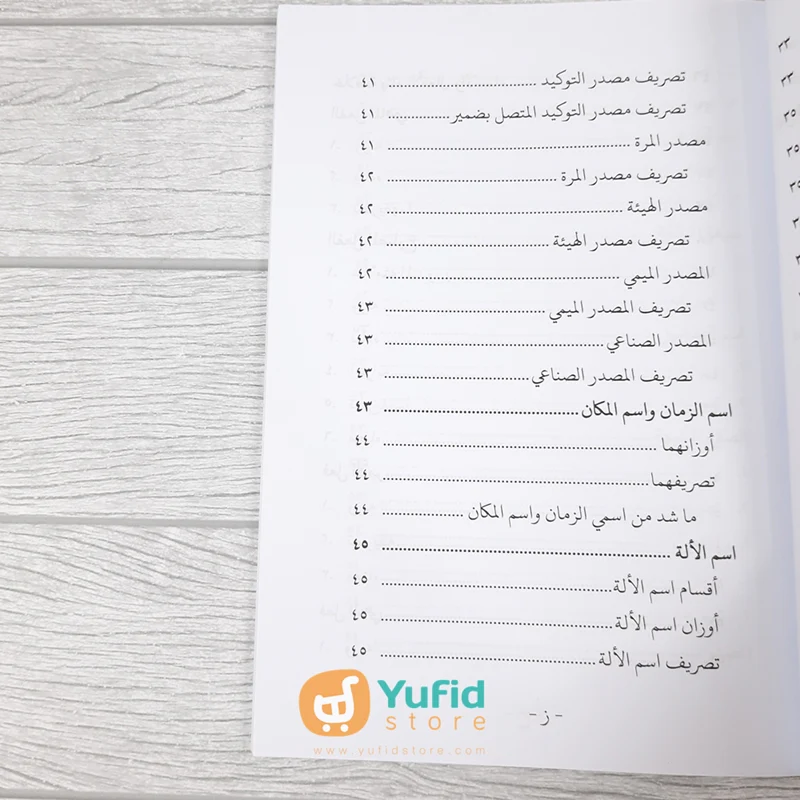 تصريف مصدر التوكيد ........ ٤١
تصريف مصدر التوكيد المتصل بضمير ........ ٤١
مصدر المرة ........ ٤١
تصريف مصدر المرة ........ ٤٢
مصدر الهيئة ........ ٤٢
تصريف مصدر الهيئة ........ ٤٢
المصدر الميمي ........ ٤٢
تصريف المصدر الميمي ........ ٤٣
المصدر الصناعي ........ ٤٣
تصريف المصدر الصناعي ........ ٤٣
اسم الزمان واسم المكان ........ ٤٣
أوزانهما ........ ٤٤
تصريفهما ........ ٤٤
ما شد من اسمي الزمان واسم المكان ........ ٤٤
اسم الألة ........ ٤٥
أقسام اسم الألة ........ ٤٥
أوزان اسم الألة ........ ٤٥
تصريف اسم الألة ........ ٤٥
- ز -
Yufid
store
www.yufidstore.com
٣٣
٣٣
٣٥
٣٥
٣٥